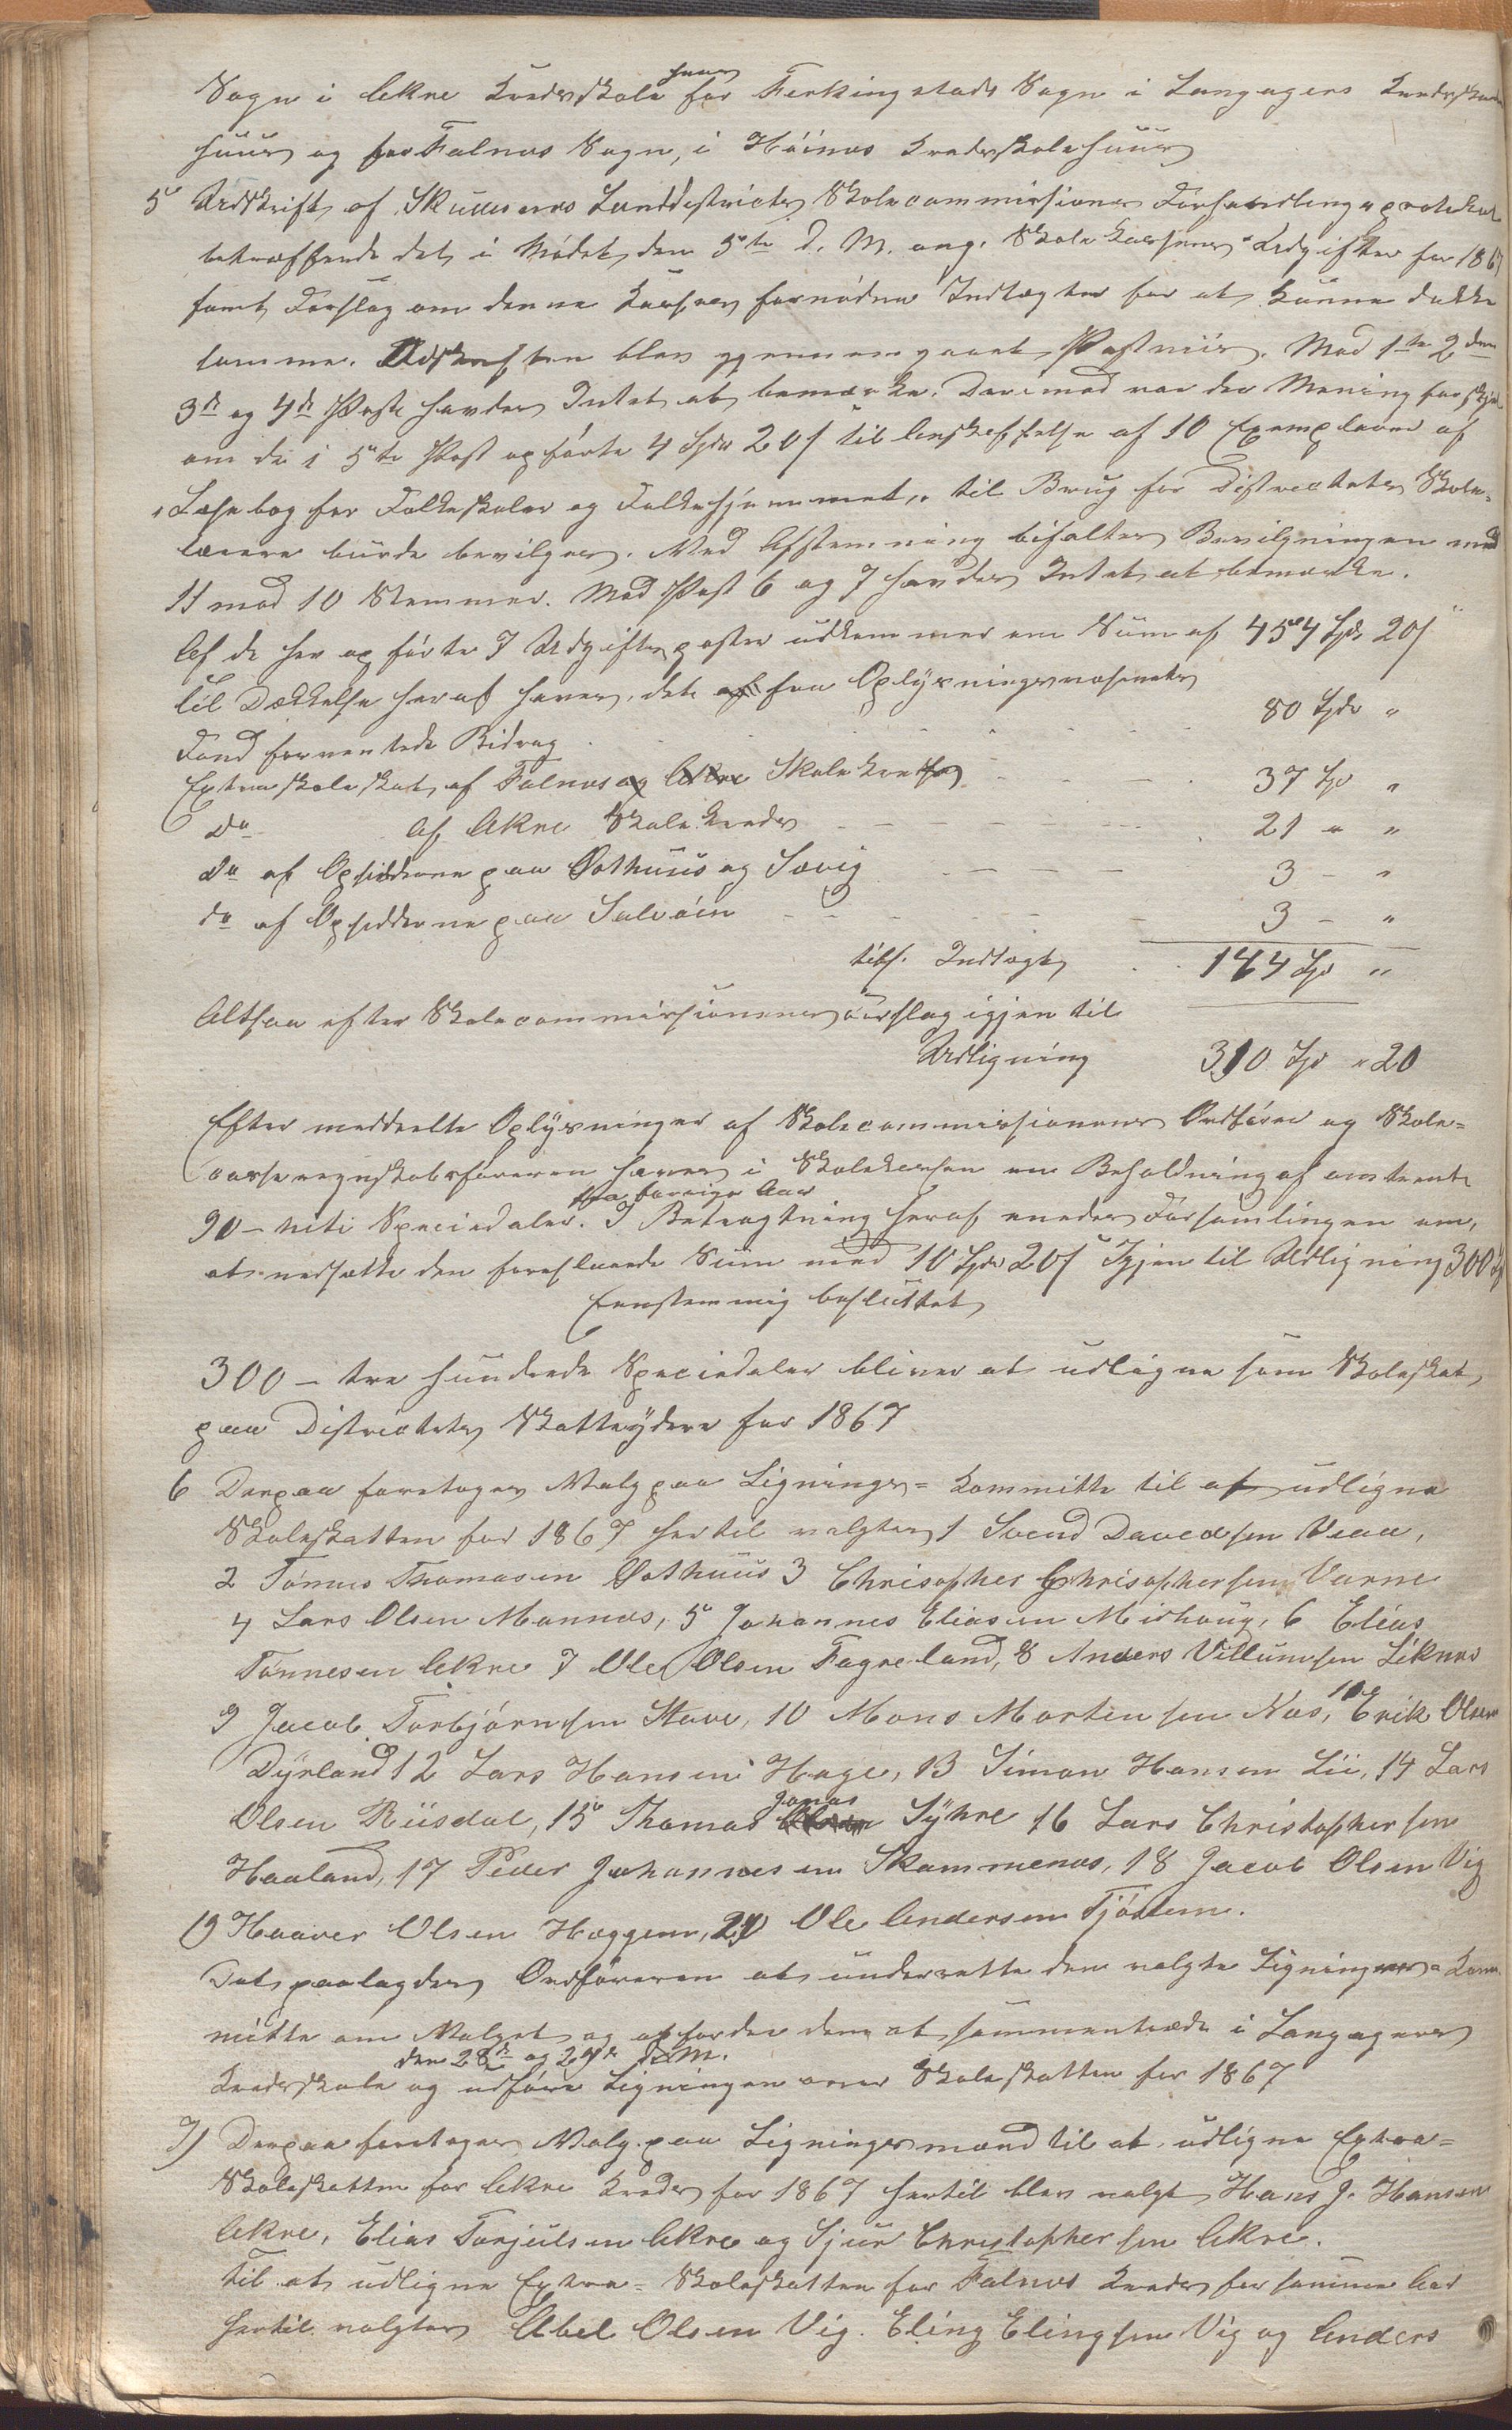 Sogn i Akre Kredsskole huus for Ferkingstads Sogn i Langagers Kredsskole
huus og for Falnæs Sogn, i Höinæs Kredsskolehuus
5 Udskrift af Skudesnæs Landdistricts Skolecommissions Forhandlingsprotokol
betræffende det i Mödet den 5te d. M. ang. Skolekassens Udgifter for 1867
samt Forslag om denne Kasses fornödne Indtægter for at kunne dække
samme. Udskriften blev gjennemgaaet Postviis. Mod 1te 2den
3de og 4de Post havdes Intet at bemærke. Derimod var der Mening forskjel
om de i 5te Post opförte 4 Spdr 20 s til Anskaffelse af 10 Exemplarer af
"Læsebog for Folkeskolen og Folkehjemmet" til Brug for Districtets Skole-
lærere burde bevilges. Ved Afstemning bifaltes Bevilgningen med
11 mod 10 Stemmer. Mod Post 6 og 7 havdes Intet at bemærke.
Af de her opförte 7 Udgiftsposter udkommer en Sum af 454 Spdr 20 s
Til Dækkelse heraf haves, det fra Oplysningsvæsenets
Fond forventede Bidrag 80 Spdr "
Extraskoleskat af Falnæs Skolekreds 37 Spd "
Do af Akre Skolekreds 21 " "
do af Opsidderne paa Östhuus og Sævig 3 - "
do af Opsidderne paa Salvöen 3 - "
tils. Indtægt 144 Spd "
Altsaa efter Skolecommissionens Forslag igjen til
Udligning 310 Spd " 20
Efter meddeelte Oplysninger af Skolecommissionens Ordförer og Skole-
casseregnskabsföreren haves i Skolekassen en Beholdning af omtrent
fra forrige Aar
90 - niti Speciedaler. I Betragtning heraf enedes Forsamlingen om,
at nedsætte den foreslaaede Sum med 10 Spdr 20 s Igjen til Udligning 300 Spd
Eenstemmig besluttet
300 - tre hundrede Speciedaler bliver at udligne som Skoleskat
paa Districtets Skatteydere for 1867
6 Derpaa foretoges Valg paa Lignings-Kommitte til at udligne
Skoleskatten for 1867 hertil valgtes 1 Svend Davedsen Veaa,
2 Tönnes Thomasen Östhuus 3 Chrisopher Chrisophersen Varne
4 Lars Olsen Mannæs, 5 Johannes Eliasen Midhoug, 6 Elias
Tönnesen Akre 7 Ole Olsen Fagreland, 8 Anders Villumsen Liknæs
9 Jacob Torbjörnsen Stave, 10 Mons Mortensen Næs, 11 Erik Olsen
Dyrland 12 Lars Hansen Hage, 13 Simon Hansen Lii, 14 Lars
Olsen Riisdal, 15 Thomas Jonas Syhre 16 Lars Christophersen
Haaland, 17 Peder Johannesen Skammenæs, 18 Jacob Olsen Vig
19 Haaver Olsen Hæggem, 20 Ole Andersen Tjösem.
Det paalagdes Ordföreren at underrette den valgte Lignings-Kom
mitte om Valget og opfordre dem at sammentræde i Langagers
den 28de og 29de d. M.
Kredsskole og udföre Ligningen over Skoleskatten for 1867
7) Derpaa foretoges Valg paa Ligningsmænd til at udligne Extra-
Skoleskatten for Akre Kreds for 1867 hertil blev valgt Hans J. Hansen
Akre, Elias Torjulsen Akre og Sjur Christophersen Akre.
Til at udligne Extra-Skoleskatten for Falnæs Kreds for samme Aar
hertil valgtes Abel Olsen Vig. Eling Elingsen Vig og Anders